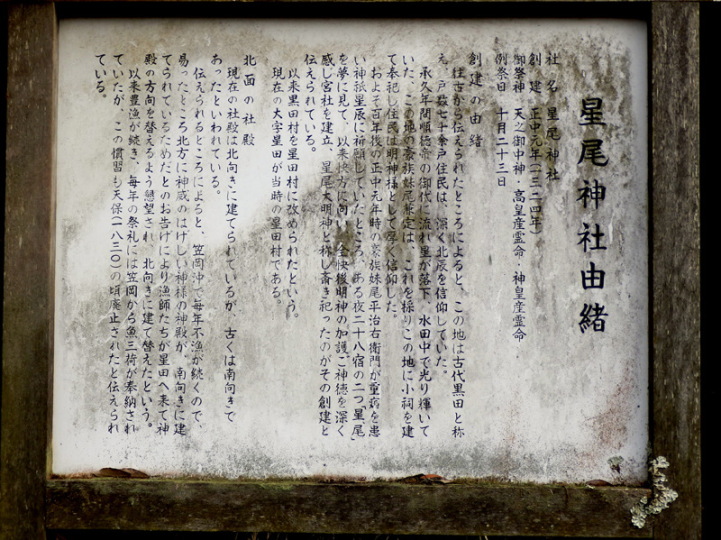 星尾神社由緒
社名 星尾神社
創建 正中元年(一三二四年)
御祭神 天之御中神・高皇産霊命・神皇産霊命
例祭日 十月二十三日
創建の由緒
往古から伝えられたところによると、この地は古代黒田と称
え、戸数七十余戸住民は、深く北辰を信仰していた。
承久年間順徳帝の御代に流れ星が落下、水田中で光り輝いて
いた。この地の豪族妹尾兼定は、これを採りこの地に小祠を建
て奉祀し住民は明神様として厚く信仰した。
およそ百年後の正中元年時の豪族妹尾平治右衛門が重病を患
い神祇星辰に祈願していたところ、ある夜二十八宿の二つ星「尾」
を夢に見て、以来快方に向い、全快後明神の加護ご神徳を深く
感じ宮社を建立、星尾大明神と称し斎き祀ったのがその創建と
伝えられている。
以来黒田村を星田村に改められたという。
現在の大字星田が当時の星田村である。
北面の社殿
現在の社殿は北向きに建てられているが、古くは南向きで
あったといわれている。
伝えられるところによると、笠岡沖で毎年不漁が続くので、
易ったところ北方に神威のはげしい神様の神殿が、南向きに建
てられているためだとのお告げにより漁師たちが星田へ来て神
殿の方向を替えるよう懇望され、北向きに建て替えたという。
以来豊漁が続き、毎年の祭礼には笠岡から魚三荷が奉納され
ていたが、この慣習も天保(一八三〇)の頃廃止されたと伝えられ
ている。